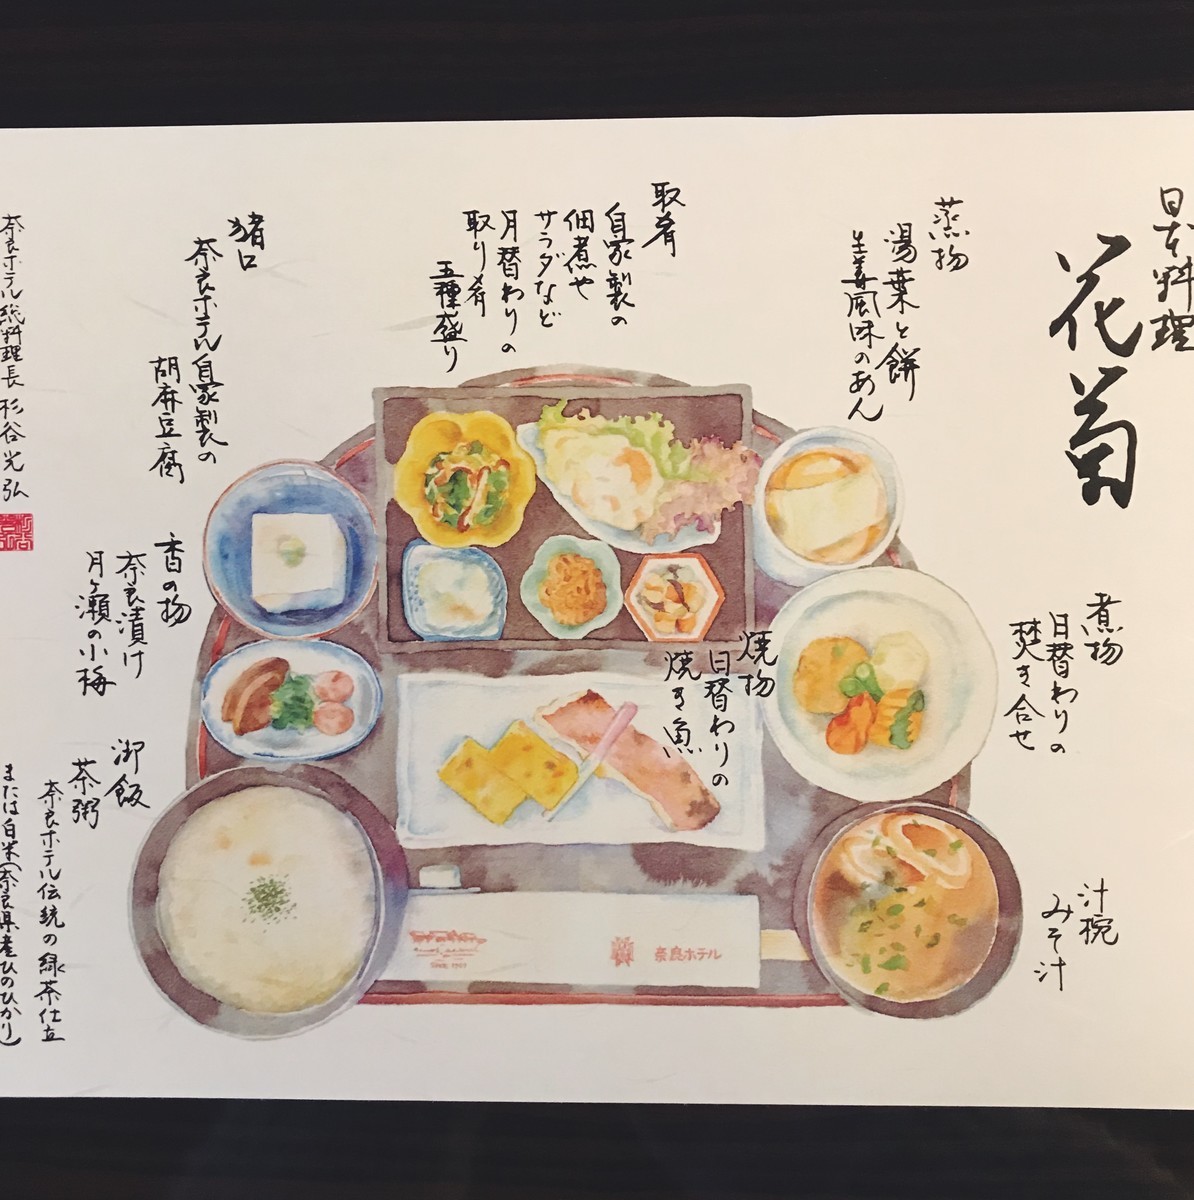 日本料理
花菊
蒸物
湯葉と餅
生姜風味のあん
煮物
日替わりの
焚き合せ
汁椀
みそ汁
取肴
自家製の
佃煮や
サラダなど
月替わりの
取り肴
五種盛り
焼物
日替わりの
焼き魚
猪口
奈良ホテル自家製の
胡麻豆腐
香の物
奈良漬け
月ヶ瀬の小梅
御飯
茶粥
奈良ホテル伝統の緑茶仕立
または白米(奈良県産ひのひかり)
奈良ホテル総料理長 杉谷光弘
SINCE 1909
奈良ホテル